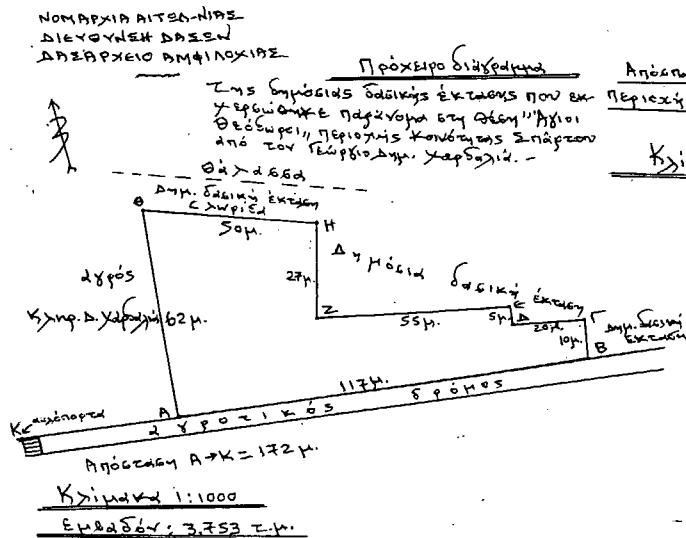 ΝΟΜΑΡΧΙΑ ΑΙΤΩΛ-ΝΙΑΣ
ΔΙΕΥΘΥΝΣΗ ΔΑΣΩΝ
ΔΑΣΑΡΧΕΙΟ ΑΜΦΙΛΟΧΙΑΣ
Πρόχειρο διάγραμμα
Της δημόσιας δασικής έκτασης που εκ-
χερσώθηκε παράνομα στη θέση "Άγιοι
Θεόδωροι,, περιοχής Κοινότητας Σπάρτου
από τον Γεώργιο Δημ. Χαρδαλιά. -
Απόσπα
περιοχή
Κλί
θάλασσα
Δημ. δασική έκταση
Λωρίδα
Θ
50μ.
Η
αγρός
Κληρ. Δ. Χαρδαλιά
62μ.
27μ.
Δημόσια δασική έκταση
Ζ
55μ.
Ε
5μ.
Δ
20μ.
Γ
10μ.
Δημ. δασική
έκταση
Β
117μ.
Α
αγροτικός δρόμος
Κ
αυλόπορτα
Απόσταση Α→Κ = 172 μ.
Κλίμακα 1:1000
Εμβαδόν: 3.753 τ.μ.